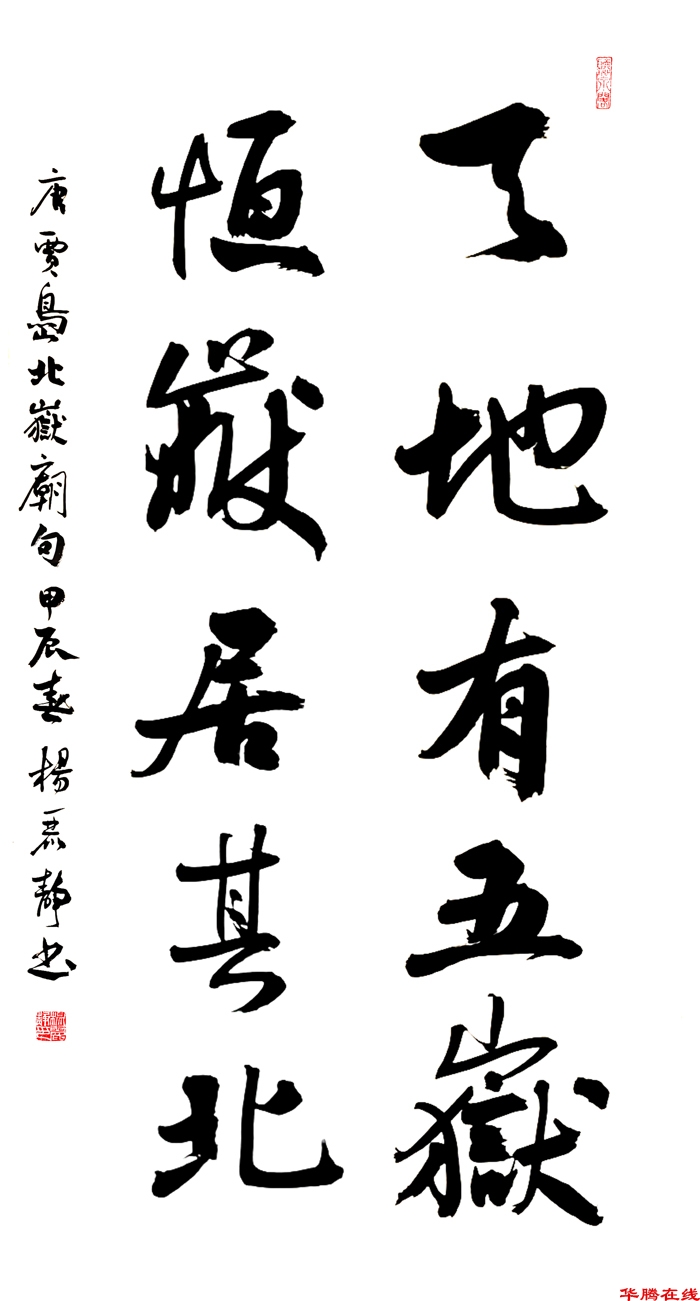 天地有五嶽
恒嶽居其北
唐賈島北嶽廟句甲辰春楊麗靜书
华腾在线